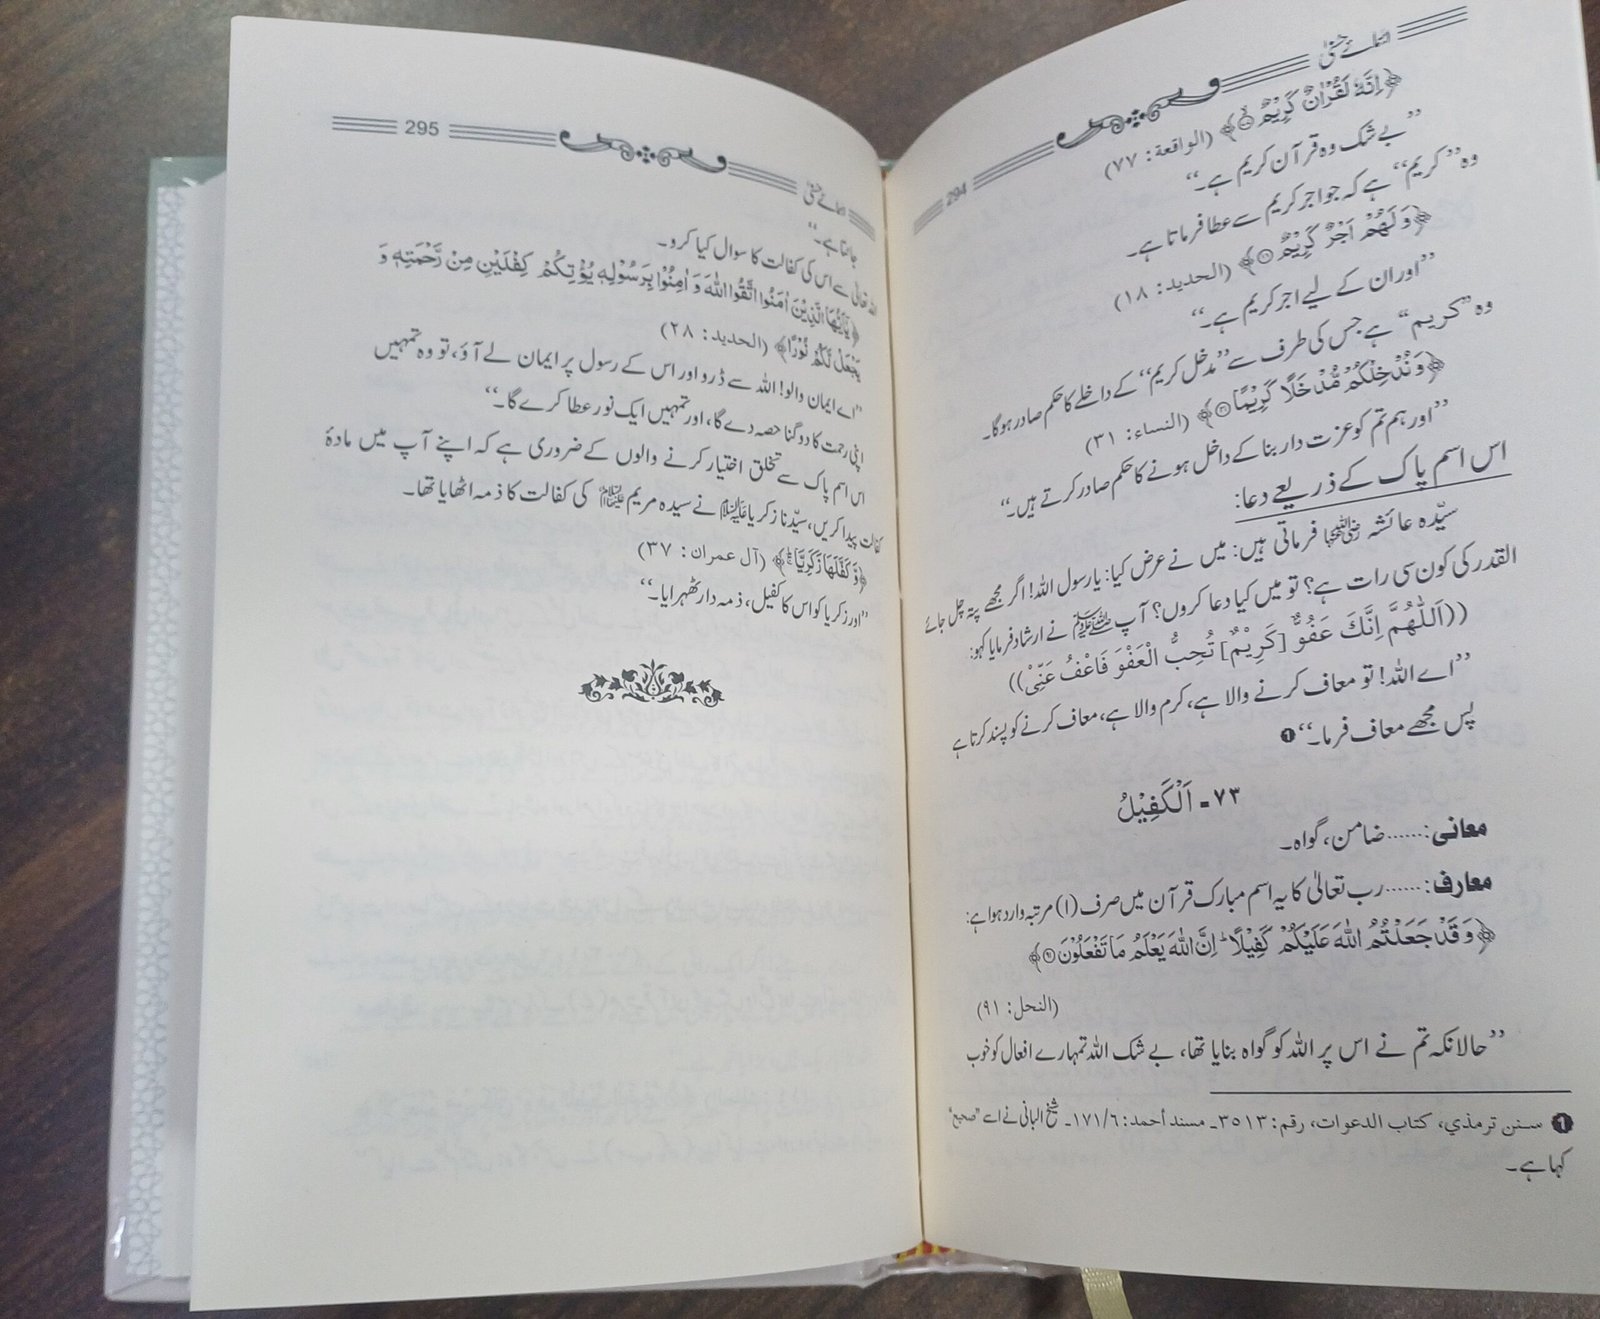 اسمائے حسنیٰ
294
﴿اِنَّهٗ لَقُرْاٰنٌ كَرِیْمٌ﴾ (الواقعة: ۷۷)
”بے شک وہ قرآن کریم ہے۔“
وہ ”کریم“ ہے کہ جو اجر کریم سے عطا فرماتا ہے۔
﴿وَ لَهُمْ اَجْرٌ كَرِیْمٌ﴾ (الحديد: ۱۸)
”اور ان کے لیے اجر کریم ہے۔“
وہ ”کریم“ ہے جس کی طرف سے ”مدخل کریم“ کے داخلے کا حکم صادر ہوگا۔
﴿وَ نُدْخِلْكُمْ مُّدْخَلًا كَرِیْمًا﴾ (النساء: ۳۱)
”اور ہم تم کو عزت دار بنا کے داخل ہونے کا حکم صادر کرتے ہیں۔“
اس اسم پاک کے ذریعے دعا:
سیّدہ عائشہ رضی اللہ عنہا فرماتی ہیں: میں نے عرض کیا: یا رسول اللہ! اگر مجھے پتہ چل جائے
القدر کی کون سی رات ہے؟ تو میں کیا دعا کروں؟ آپ ﷺ نے ارشاد فرمایا کہو:
((اَللّٰهُمَّ اِنَّكَ عَفُوٌّ [كَرِيْمٌ] تُحِبُّ الْعَفْوَ فَاعْفُ عَنِّيْ))
”اے اللہ! تو معاف کرنے والا ہے، کرم والا ہے، معاف کرنے کو پسند کرتا ہے
پس مجھے معاف فرما۔“ ❶
۷۳۔ اَلْكَفِيْلُ
معانی: ......ضامن، گواہ۔
معارف: ......رب تعالیٰ کا یہ اسم مبارک قرآن میں صرف (۱) مرتبہ وارد ہوا ہے:
﴿وَ قَدْ جَعَلْتُمُ اللّٰهَ عَلَیْكُمْ كَفِیْلًا ؕ اِنَّ اللّٰهَ یَعْلَمُ مَا تَفْعَلُوْنَ﴾
(النحل: ۹۱)
”حالانکہ تم نے اس پر اللہ کو گواہ بنایا تھا، بے شک اللہ تمہارے افعال کو خوب
❶ سنن ترمذي، كتاب الدعوات، رقم: ۳۵۱۳۔ مسند أحمد: ۱۷۱/۶۔ شیخ البانی نے اسے ”صحیح“
کہا ہے۔
اسمائے حسنیٰ
295
جانتا ہے۔“
اللہ تعالیٰ سے اس کی کفالت کا سوال کیا کرو۔
﴿یٰۤاَیُّهَا الَّذِیْنَ اٰمَنُوا اتَّقُوا اللّٰهَ وَ اٰمِنُوْا بِرَسُوْلِهٖ یُؤْتِكُمْ كِفْلَیْنِ مِنْ رَّحْمَتِهٖ وَ
یَجْعَلْ لَّكُمْ نُوْرًا﴾ (الحديد: ۲۸)
”اے ایمان والو! اللہ سے ڈرو اور اس کے رسول پر ایمان لے آؤ، تو وہ تمہیں
اپنی رحمت کا دوگنا حصہ دے گا، اور تمہیں ایک نور عطا کرے گا۔“
اس اسم پاک سے تخلق اختیار کرنے والوں کے ضروری ہے کہ اپنے آپ میں مادۂ
کفالت پیدا کریں، سیّدنا زکریا علیہ السلام نے سیدہ مریم علیہا السلام کی کفالت کا ذمہ اٹھایا تھا۔
﴿وَّ كَفَّلَهَا زَكَرِیَّا ؕ﴾ (آل عمران: ۳۷)
”اور زکریا کو اس کا کفیل، ذمہ دار ٹھہرایا۔“